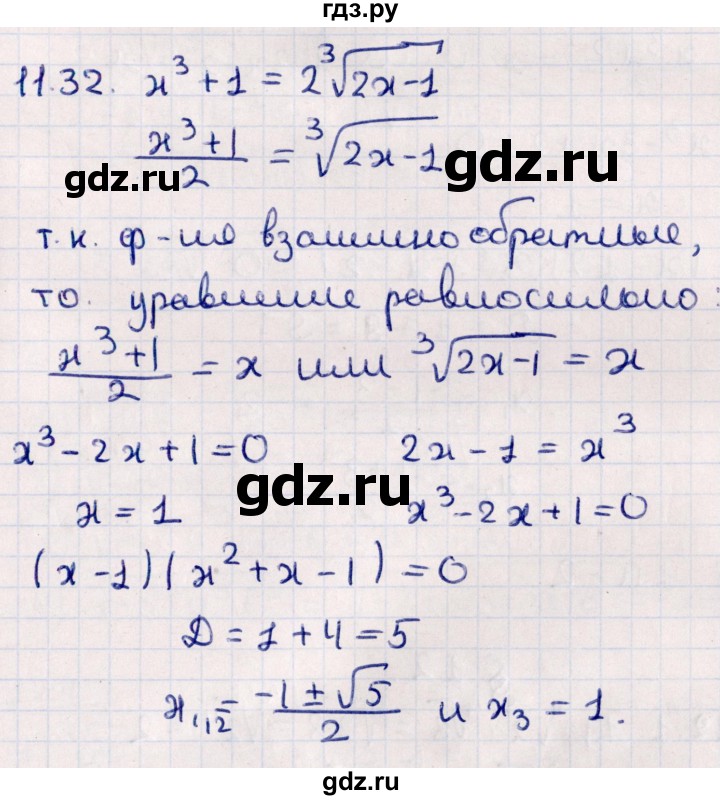 гдз.ру
11.32. x³ + 1 = 2∛(2x-1)
(x³+1)/2 = ∛(2x-1)
gdz.ru gdz.ru
т.к. ф-ие взаимно обратные,
то. уравнение равносильно:
(x³+1)/2 = x или ∛(2x-1) = x
x³ - 2x + 1 = 0 2x - 1 = x³
gdz.ru
x = 1 x³ - 2x + 1 = 0
(x-1)(x² + x - 1) = 0
Д = 1 + 4 = 5
x₁,₂ = (-1 ± √5)/2 и x₃ = 1.
gdz.ru